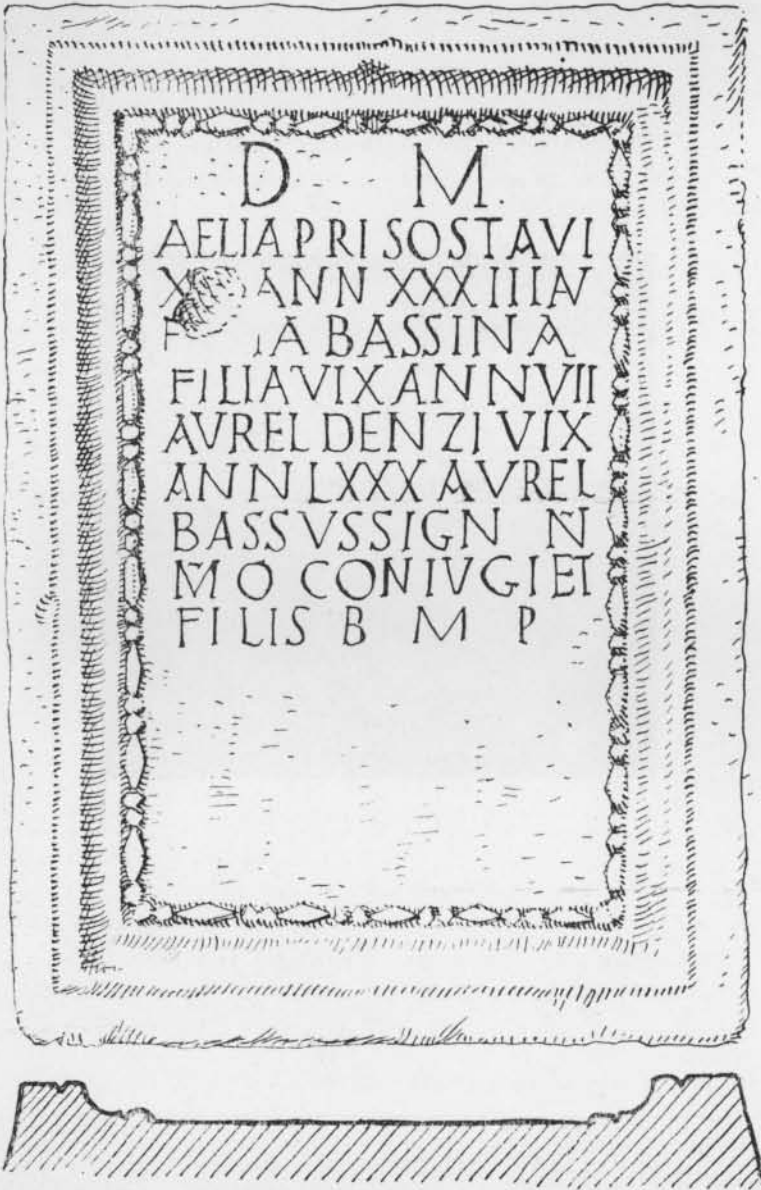 D M
AELIA PRISOSTA VI
X ANN XXXIIII AV
IA BASSINA
FILIA VIX ANN VII
AVREL DENZI VIX
ANN LXXX AVREL
BASSVS SIGN N̄
M̄ O CONIVGI ET
FILIS B M P